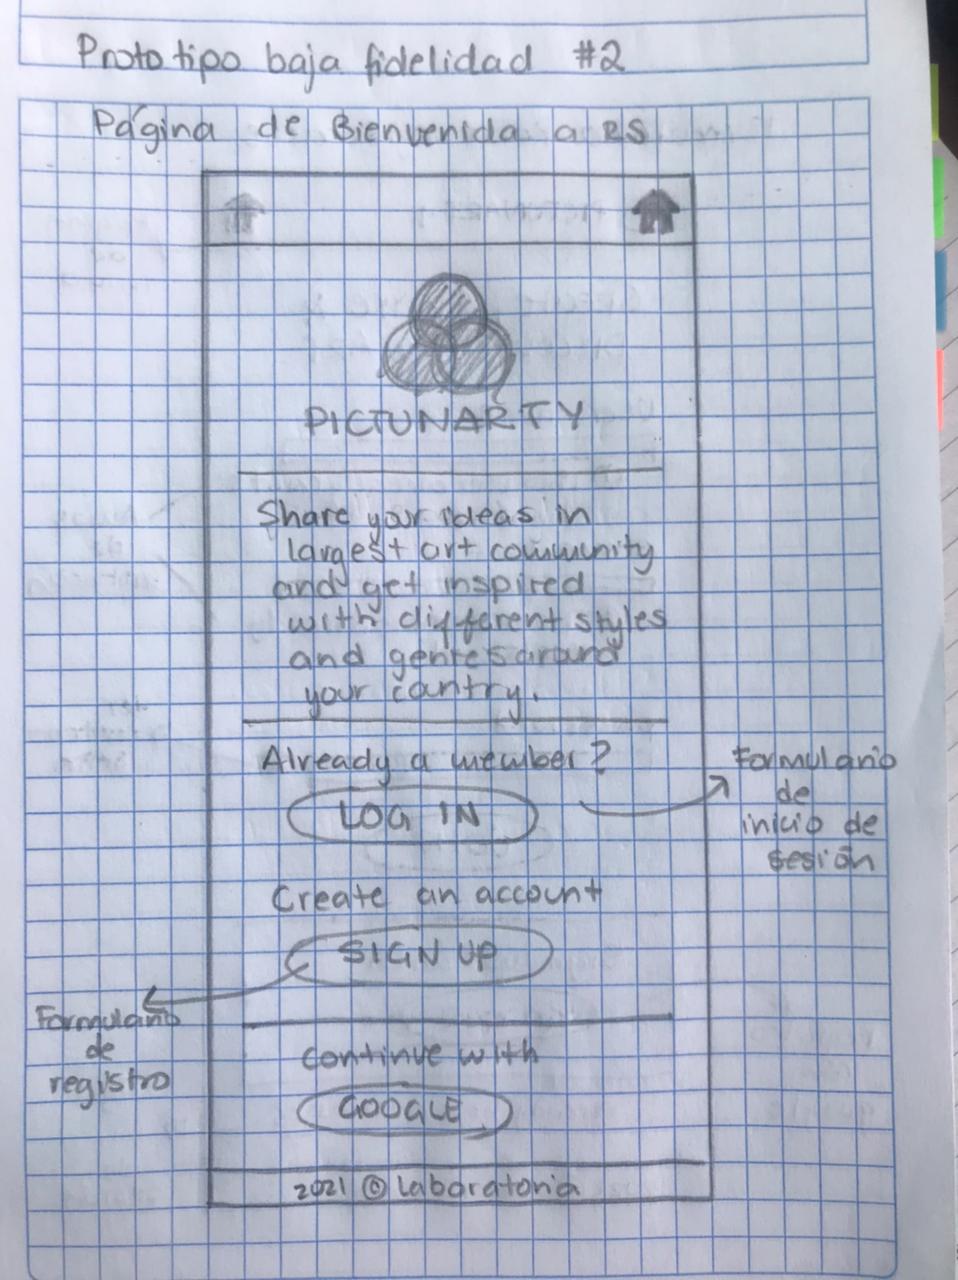 Prototipo baja fidelidad #2
Página de Bienvenida a RS
PICTUNARTY
Share your ideas in
largest art community
and get inspired
with different styles
and genres around
your cantry.
Already a member?
LOG IN
Formulario
de
inicio de
sesión
Create an account
SIGN UP
Formulario
de
registro
continue with
GOOGLE
2021 © Laboratoria